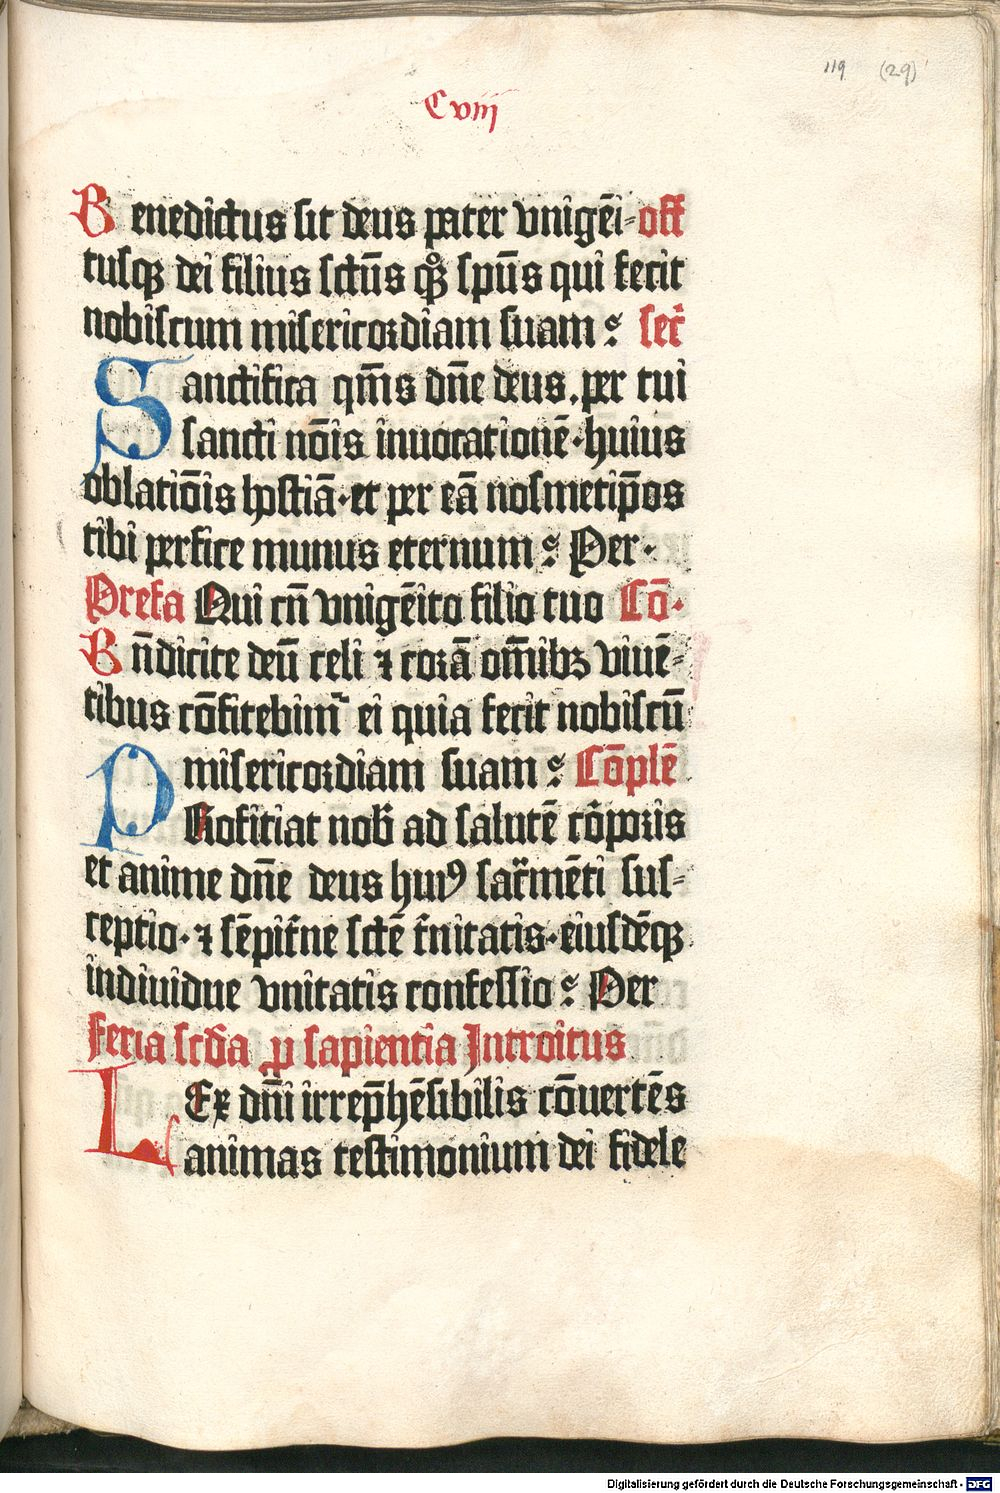 119 (29)
Cviii
Benedictus sit deus pater vnigēi⸗ off̄
tusqꝫ dei filius sctūs qͦꝫ spūs qui fecit
nobiscum misericordiam suam : secr̄
Sanctifica qm̄s dn̄e deus. per tui
sancti nōīs inuocationē · huius
oblatiōīs hostiā · et per eā nosmetip̄os
tibi perfice munus eternum : Per ·
Prefa Qui cū vnigēito filio tuo Cō ·
Bn̄dicite deū celi ⁊ corā om̄ibꝫ viuē⸗
tibus cōfitebim᷑ ei quia fecit nobiscū
misericordiam suam : Cōplē
Proficiat nob̄ ad salutē cōꝑoris
et anime dn̄e deus huiꝰ sac̄rmēti sus⸗
ceptio · ⁊ sēpit̄ne sctē t̄nitatis · eiusdēqꝫ
indiuidue vnitatis confessio : Per
feria scd̄a ꝓ sapientia Introitus
LEx dn̄i irrep̄hēsibilis cōuertēs
animas testimonium dei fidele
Digitalisierung gefördert durch die Deutsche Forschungsgemeinschaft - DFG